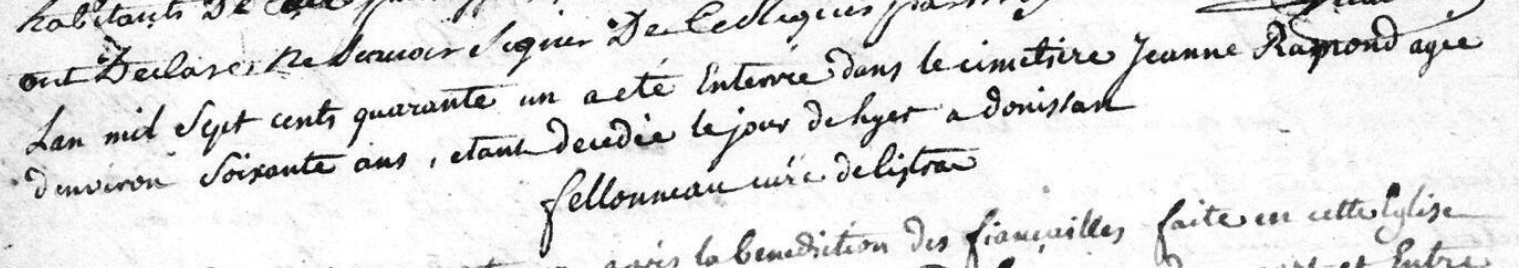 habitants De
ont Declaré ne Scavoir Signer De Ce Requis
Lan mil Sept cents quarante un a eté Enterrée dans le cimetiere Jeanne Ramond agée
denviron Soixante ans, etant decedée le jour de hyer a donissan
fellonneau curé de listrac
après la benediction des fiançailles faite en cette Eglise
Entre